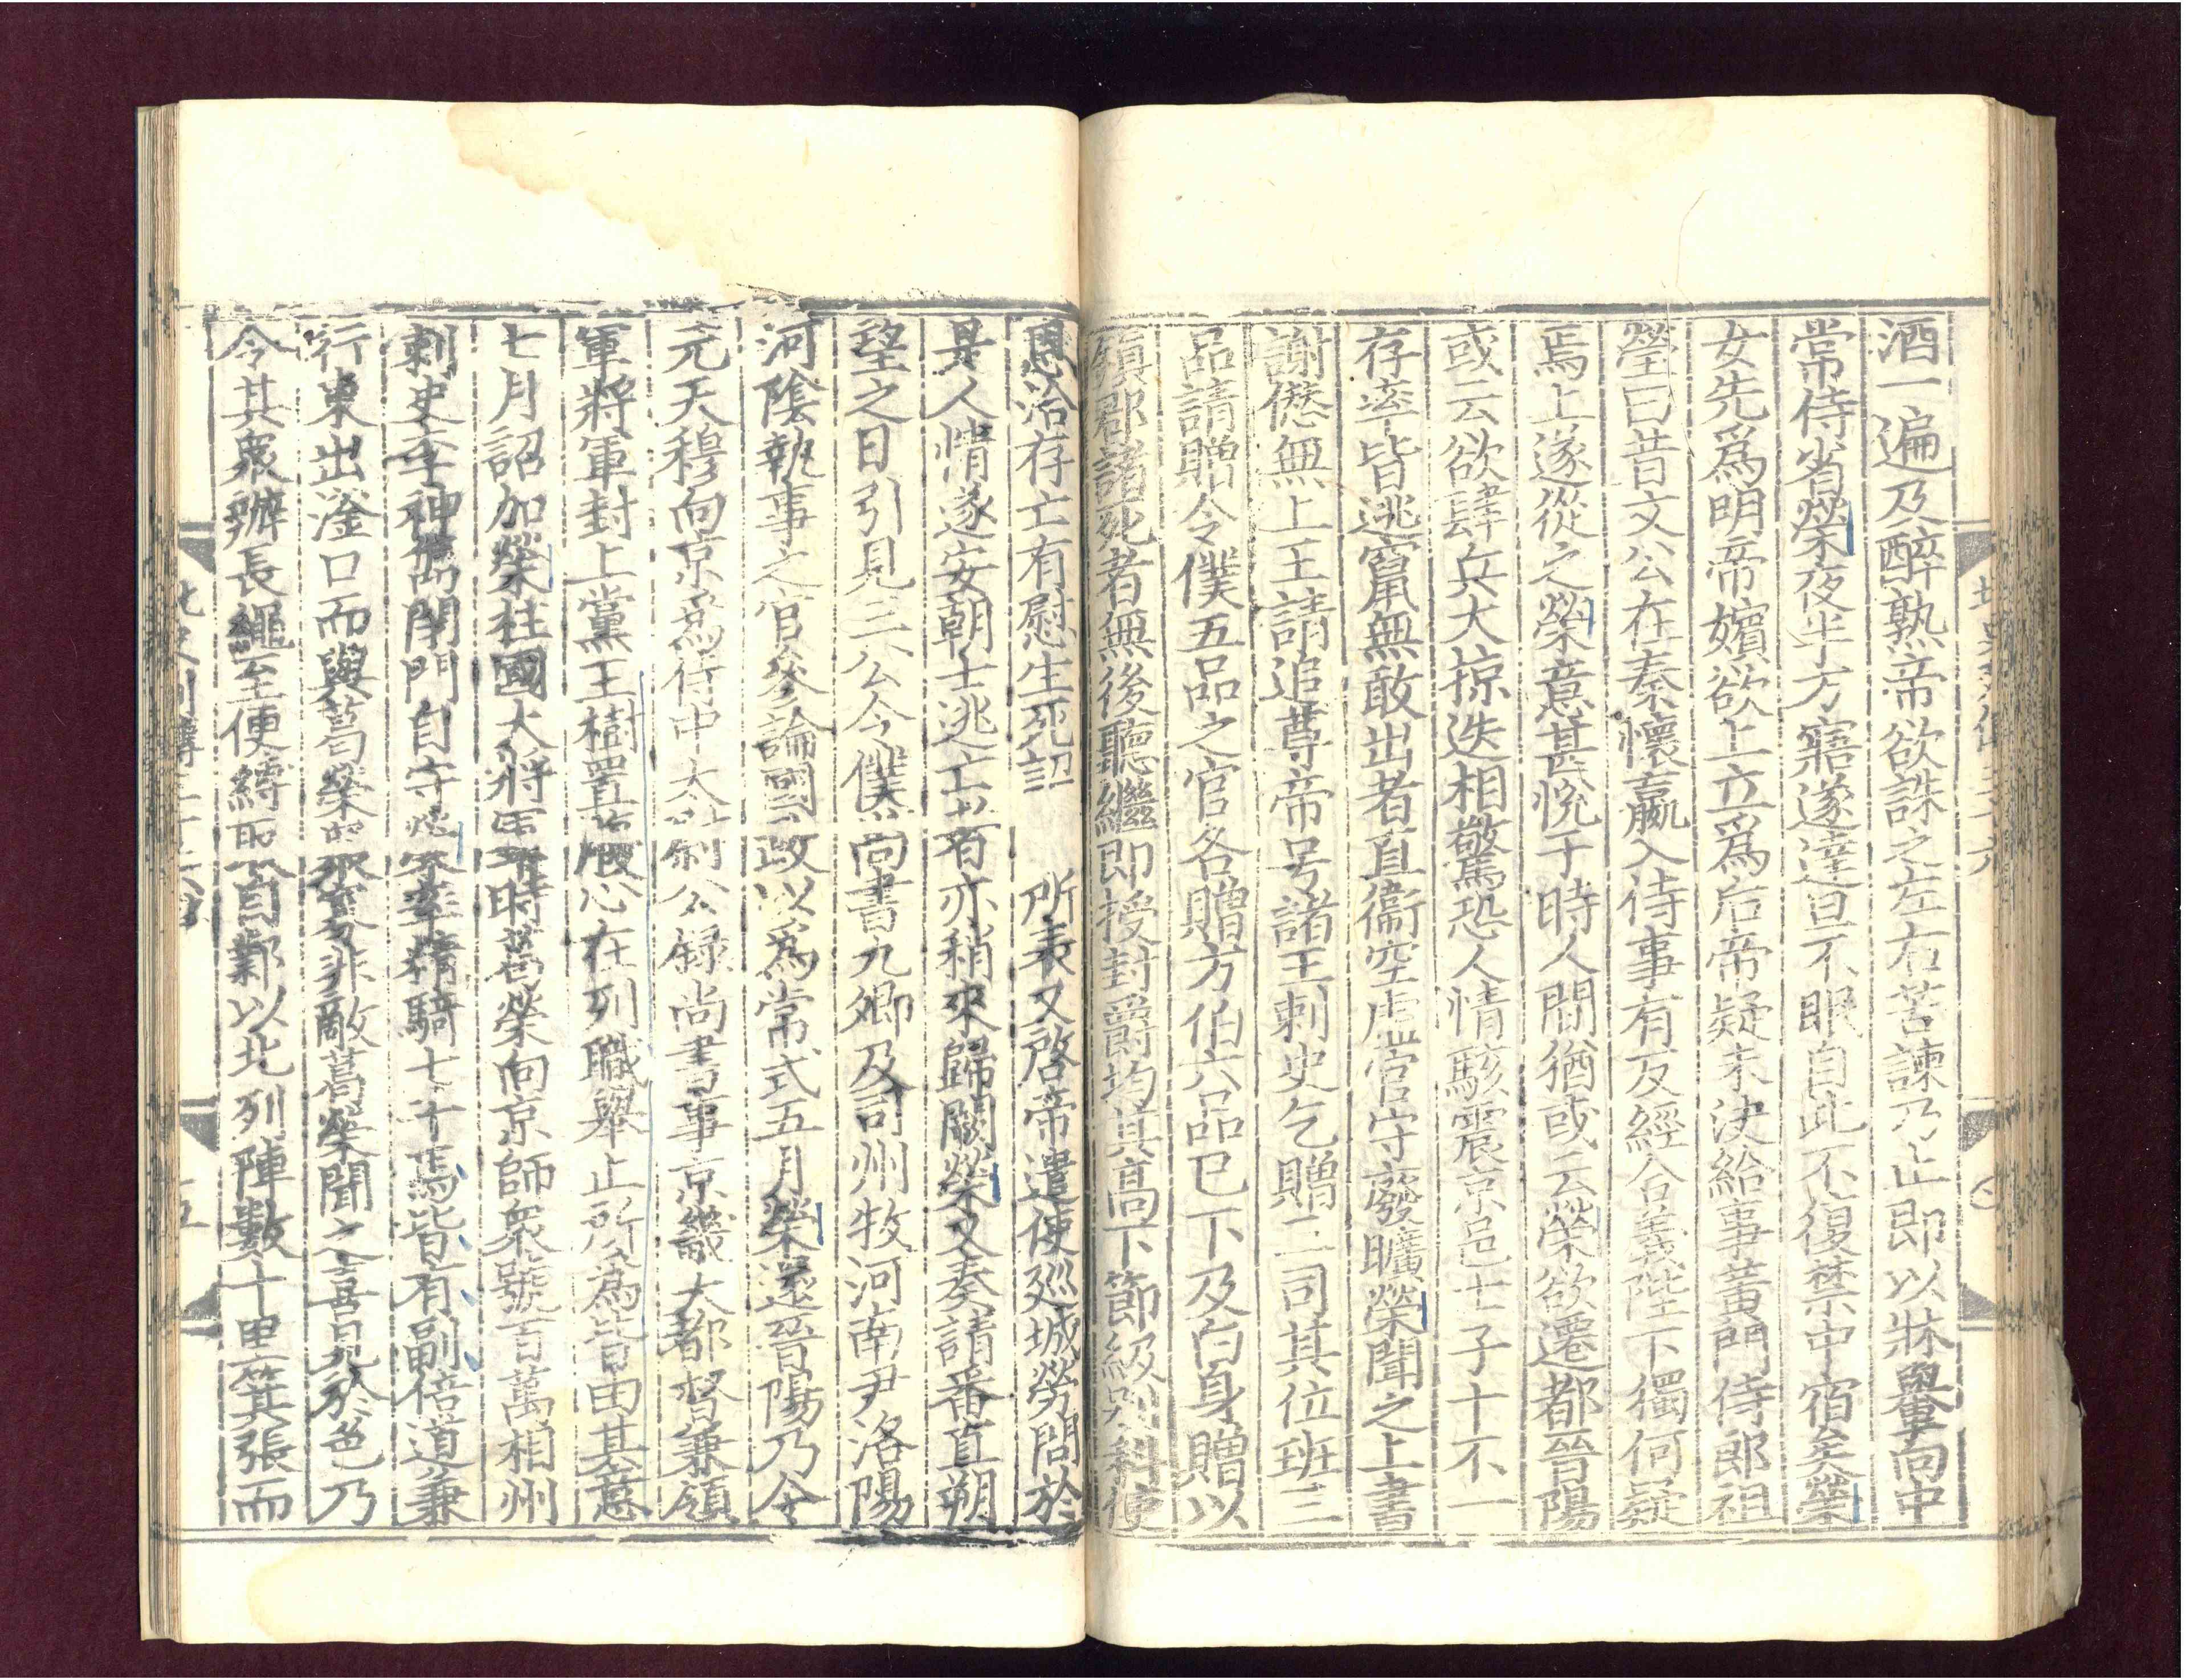 酒一遍及醉熟帝欲誅之左右苦諫乃止即以牀轝向中
常侍省榮夜半方寤遂達旦不眠自此不復禁中宿矣榮
女先爲明帝嬪欲上立爲后帝疑未決給事黃門侍郎祖
瑩曰昔文公在秦懷嬴入侍事有反經合義陛下獨何疑
焉上遂從之榮意甚悅于時人間猶或云榮欲遷都晉陽
或云欲肆兵大掠迭相驚恐人情駭震京邑士子十不一
存率皆逃竄無敢出者直衞空虛官守廢曠榮聞之上書
謝愆無上王請追尊帝号諸王刺史乞贈二司其位班三
品請贈令僕五品之官各贈方伯六品已下及白身贈以
鎮郡諸死者無後聽繼即授封爵均其高下節級別科使
恩洽存亡有慰生死詔 所表又啓帝遣使巡城勞問於
是人情遂安朝士逃亡者亦稍來歸闕榮又奏請番直朔
望之日引見三公令僕尚書九卿及司州牧河南尹洛陽
河陰執事之官參論國政以爲常式五月榮還晉陽乃令
元天穆向京爲侍中太尉公錄尚書事京畿大都督兼領
軍將軍封上黨王樹置腹心在列職舉止所爲皆由其意
七月詔加榮柱國大將軍時葛榮向京師衆號百萬相州
刺史李神儁閉門自守榮率精騎七千馬皆有副倍道兼
行東出滏口而與葛榮衆寡非敵葛榮聞之喜見於色乃
令其衆辦長繩至便縛取自鄴以北列陣數十里箕張而
北史列傳三十六
五